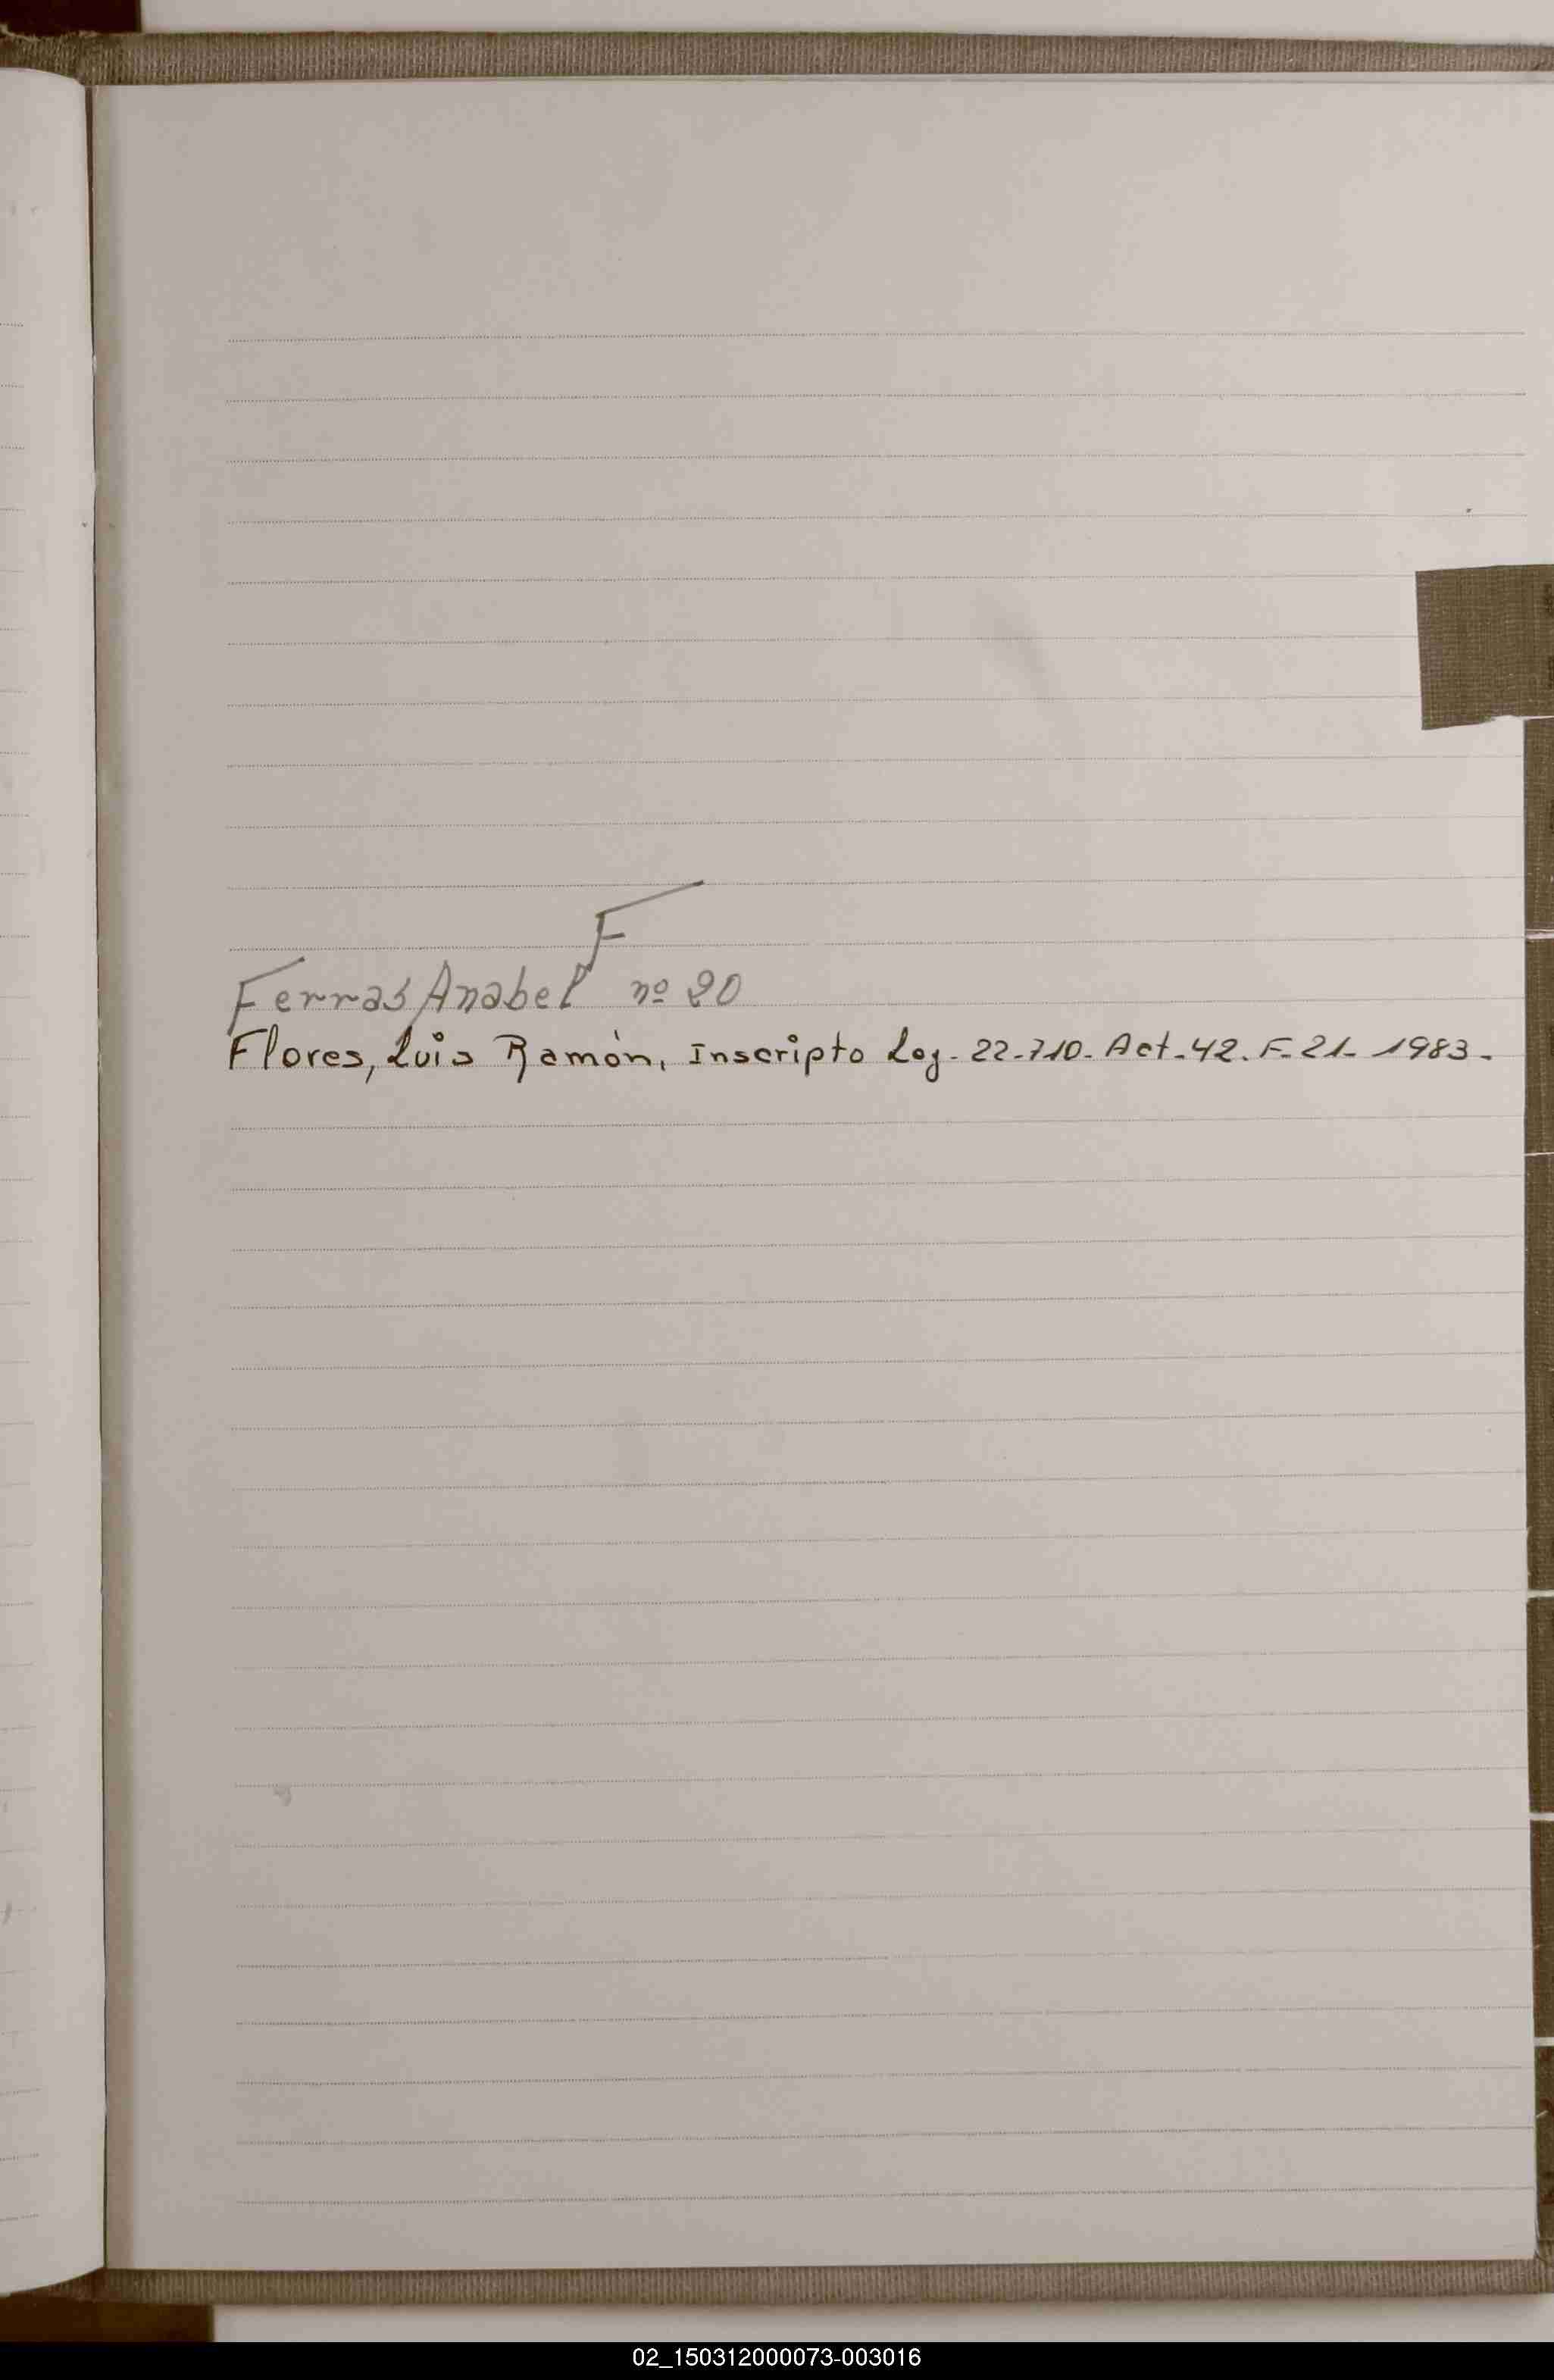 F
Ferras Anabel nº 20
Flores, Luis Ramón, Inscripto Ley- 22-710- Act-42. F-21- 1983-
02_150312000073-003016